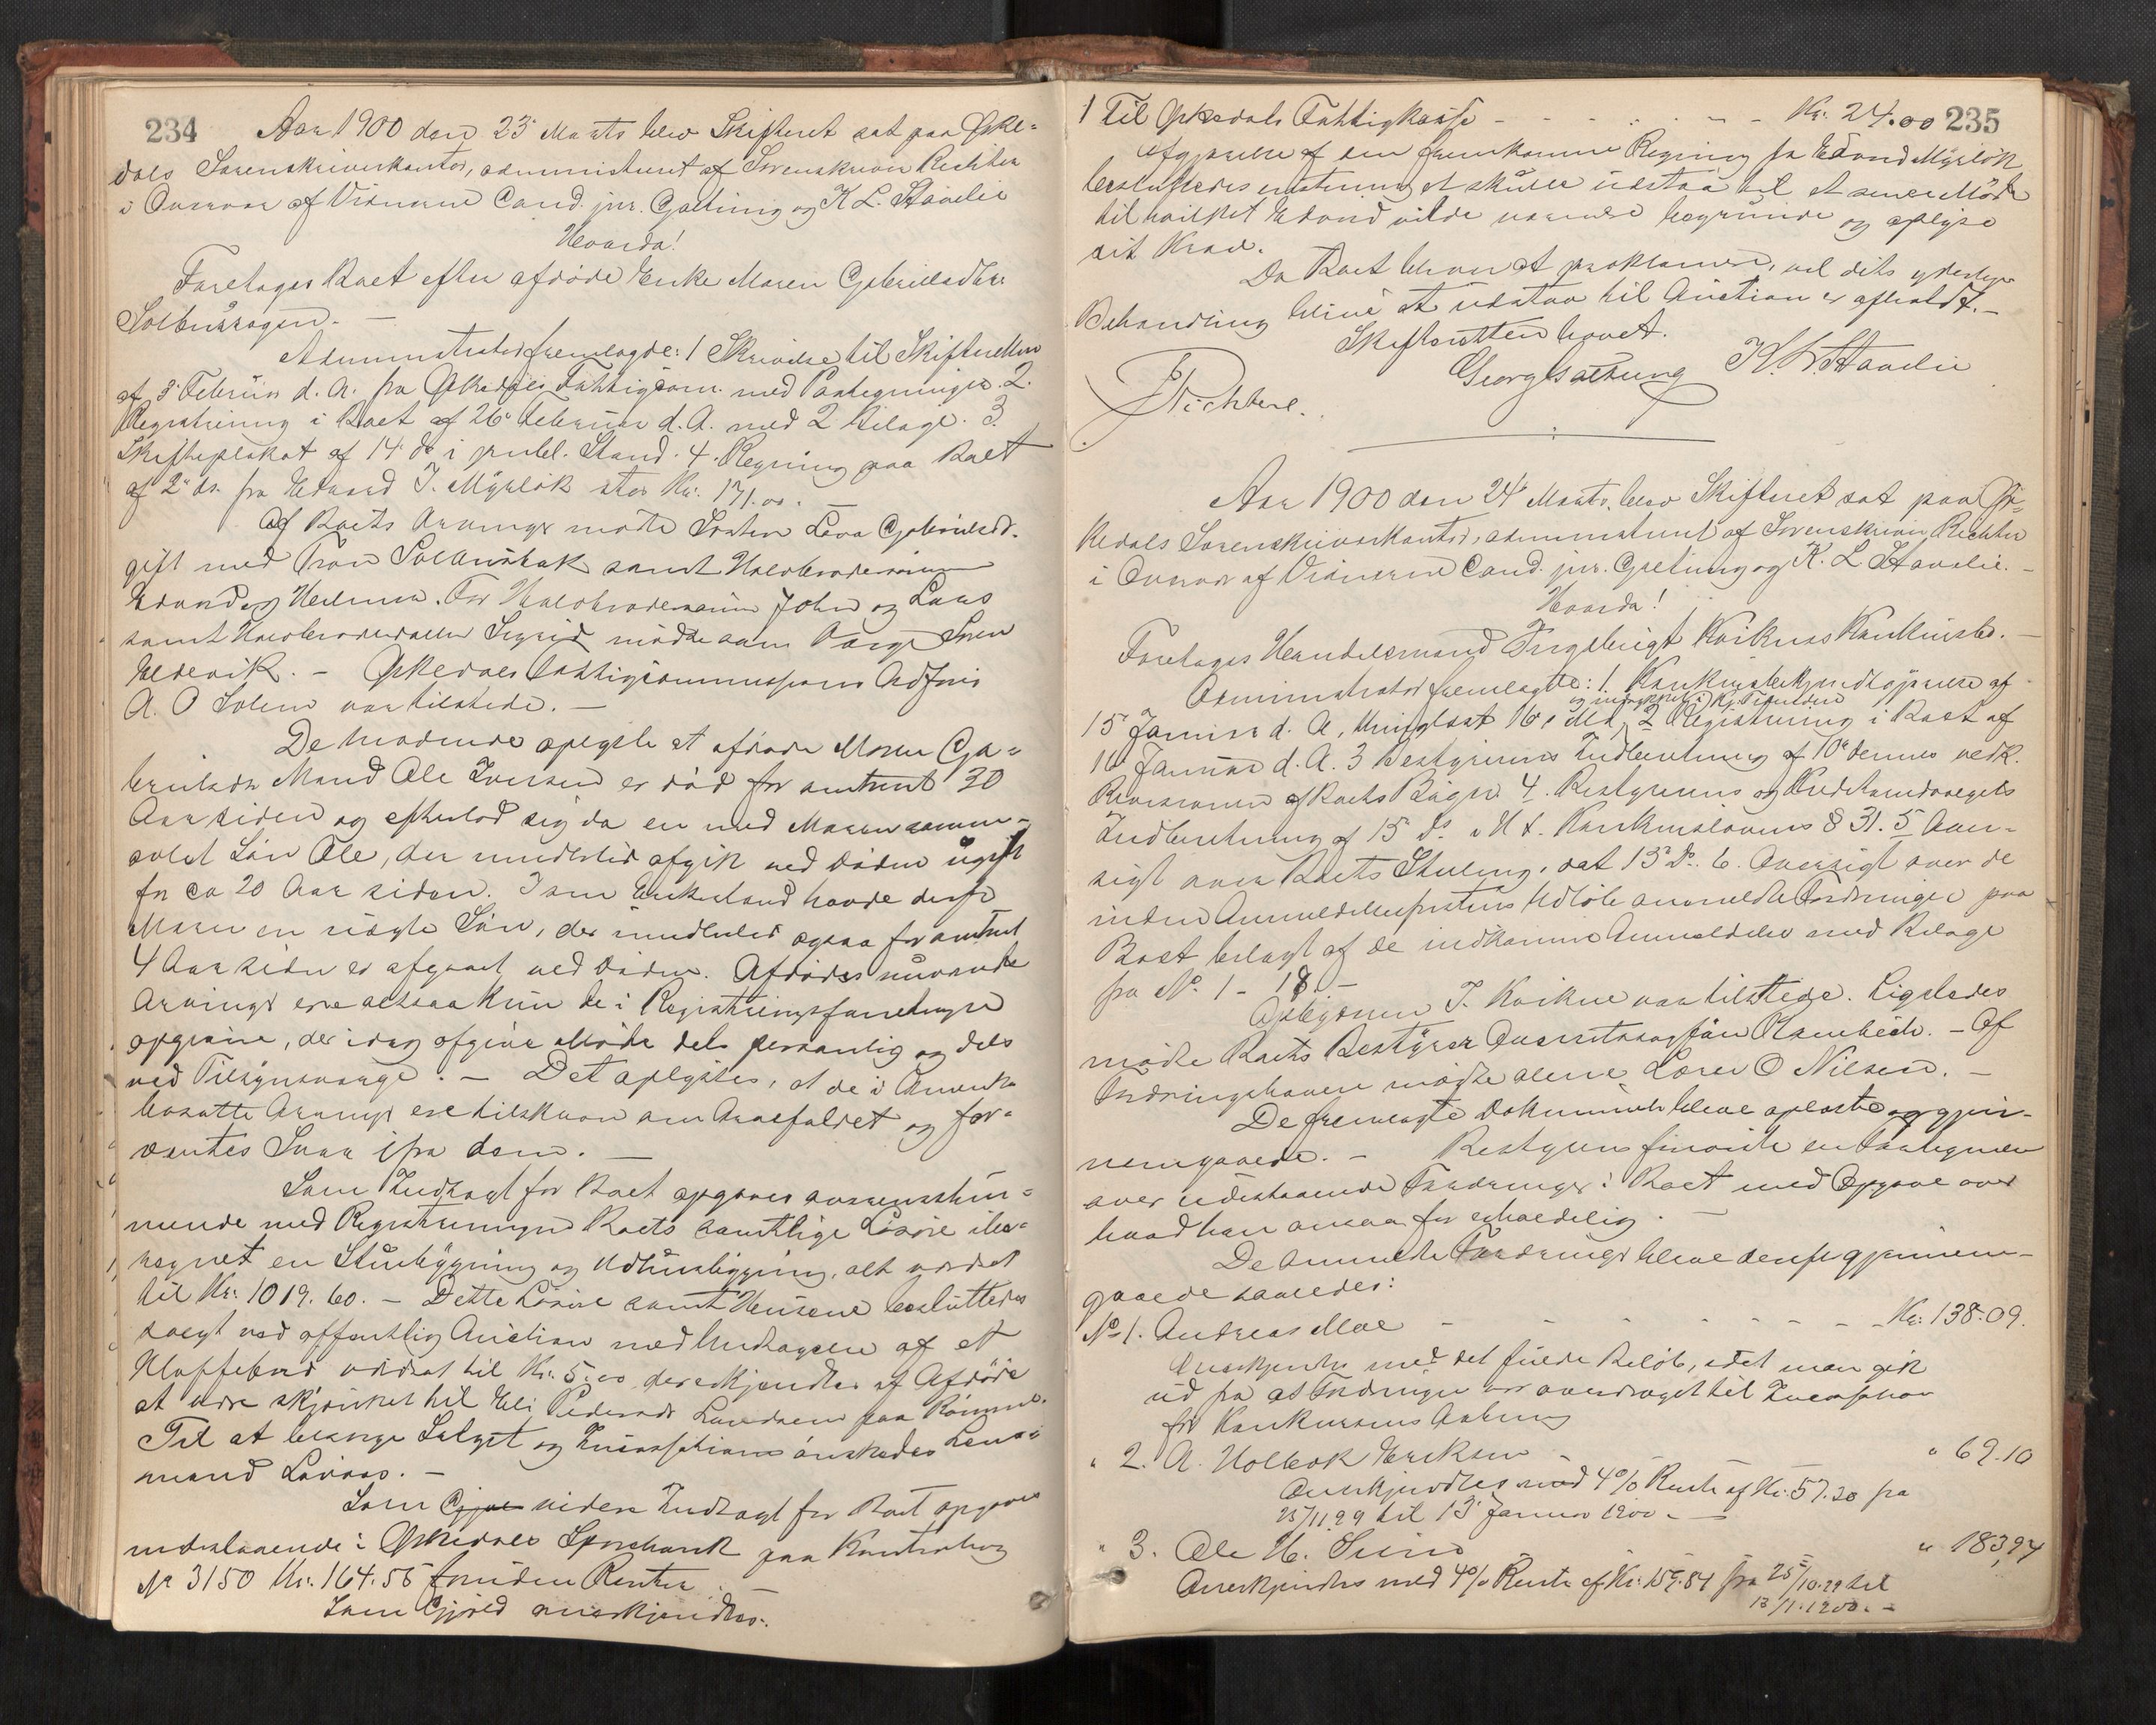 234
Aar 1900 den 23' Marts blev Skifteret sat paa Orke-
dals Sorenskriverkontor, administreret af Sorenskriver Richter
i Overvær af Vidnerne Cand. jur. Galtung og K L. Stavlie
Hvorda!
Foretoges Boet efter afdøde Enke Maren Gabrielsdtr.
Solbusaagen. —
Administrator fremlagde: 1 Skrivelse til Skifteretten
af 3' Februar d. A. fra Orkedals Fattigcom. med Paategninger. 2.
Registrering i Boet af 26' Februar d. A. med 2 Bilage. 3.
Skifteplakat af 14' ds i publ. Stand. 4. Regning paa Boet
af 2' ds. fra Edvard I. Myrløk stor Kr. 171.00. —
Af Boets Arvinger mødte Søsteren Gabrielsdr.
gift med samt Halvbrodersønnerne
Edvard og . For Halvbrodersønnerne John og Lars
samt Halvbroderdatter Sigrid mødte som Værge Sven
. – Orkedals Fattigcommissions Adjoin
A. O Solem var tilstede. —
De mødende oplyste at afdøde Maren Ga-
brielsdr Mand Ole Iversen er død for omtrent 30
Aar siden og efterlod sig da en med Maren sammen-
avlet Søn Ole, der imidlertid afgik ved Døden ugift
for ca 20 Aar siden. I sin Enkestand havde derpaa
Maren en uægte Søn, der imidlertid ogsaa for omtrent
4 Aar siden er afgaaet ved Døden. Afdødes nuværende
Arvinger ere altsaa kun de i Registreringsforretningen
opgivne, der idag afgive Møde dels personlig og dels
ved Tilsynsværge. — Det oplystes, at de i Amerika
bosatte Arvinger ere tilskrevne om Arvefaldet og for-
ventes Svar ifra dem. —
Som Indtægt for Boet opgaves overensstem-
mende med Registreringen Boets samtlige Løsøre ibe-
regnet en Stuebygning og Udhusbygning, alt vurderet
til Kr: 1019.60. — Dette Løsøre samt Husene besluttedes
solgt ved offentlig Auction med Undtagelse af et
Klaffebord vurderet til Kr. 5.00 der erkjendtes af Afdøde
at være skjænket til Eli Pedersdr
Til at besørge Salget og Incassationen ønskedes Lens-
mand . —
Som videre Indtægt for Boet opgaves
indestaaende i Orkedals Sparebank paa Kontrabog
No 3150 Kr. 164.56 foruden Renter. —
Som Gjæld anerkjendtes:
235
1 Til Orkedals Fattigkasse – – – – – – Kr. 24.00
Afgjørelse af den fremkomne Regning fra Edvard Myrløk
besluttedes at skulle udstaa til et senere Møde
til hvilket Edvard vilde nærmere begrunde og oplyse
sit Krav.
Da Boet bliver at proklamere, vil dets yderligere
Behandling blive at udstaa til Auction er afholdt. —
Skifteretten hævet.
Richter. Georg Galtung K. L. Stavlie
Aar 1900 den 24' Marts blev Skifteret sat paa Or-
kedals Sorenskriverkontor, administreret af Sorenskriver Richter
i Overvær af Vidnerne Cand. jur. Galtung og K. L Stavlie. –
Hvorda!
Foretoges Handelsmand Ingebrigt Kviknes Konkursbo. —
Administrator fremlagde: 1. Konkursbekjendtgjørelse af
og indrykket i Kr. Tidende
15' Januar d. A, thinglæst 16' s. Md, 2 Registrering i Boet af
16' Januar d. A. 3 Bestyrerens Indberetning af 10' dennes vedk.
Revisionen af Boets Bøger. 4. Bestyrerens og Kreditorudvalgets
Indberetning af 15' Ds. i H. t. Konkurslovens § 31. 5 Over-
sigt over Boets Stilling, dat 15' Ds. 6. Oversigt over de
inden Anmeldelsesfristens Udløb anmeldte Fordringer paa
Boet belagt af de indkomne Anmeldelser med Bilage
fra No. 1 – 18. —
Opbyderen I. Kvikne var tilstede. Ligeledes
mødte Boets Bestyrer Overretssagfører . – Af
Fordringshavere mødte alene Lærer O Nilsen. —
De fremlagte Dokumenter bleve oplæste og gjen-
nemgaaede. – Bestyreren en Fortegnelse
over udestaaende Fordringer i Boet med Opgave over
hvad han ansaa for erholdelig. —
De anmeldte Fordringer bleve derpaa gjennem-
gaaede saaledes:
No 1. Andreas Moe – – – – – – – Kr: 138.09.
Anerkjendtes med det fulde Beløb, idet man gik
ud fra at Fordringen var overdraget til Incassation
før Konkursens Aabning
" 2. A. Holbæk Eriksen – " 69.10
Anerkjendtes med 4% Rente af Kr. 57.20 fra
25/11 99 til 13' Januar 1900. —
" 3. Ole H. " 183,94
Anerkjendtes med 4% Rente af Kr. 159.84 fra 25/10.99 til
13/1.1900. –